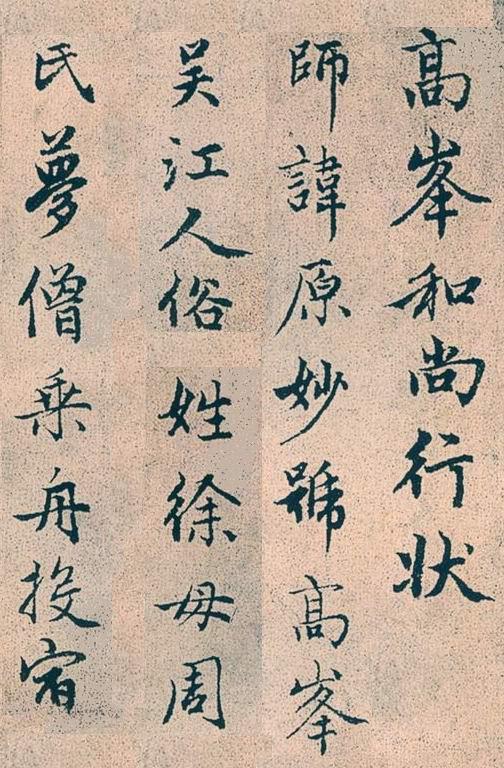 高峯和尚行状
師諱原妙號髙峯
吴江人俗姓徐母周
氏夢僧乗舟投宿